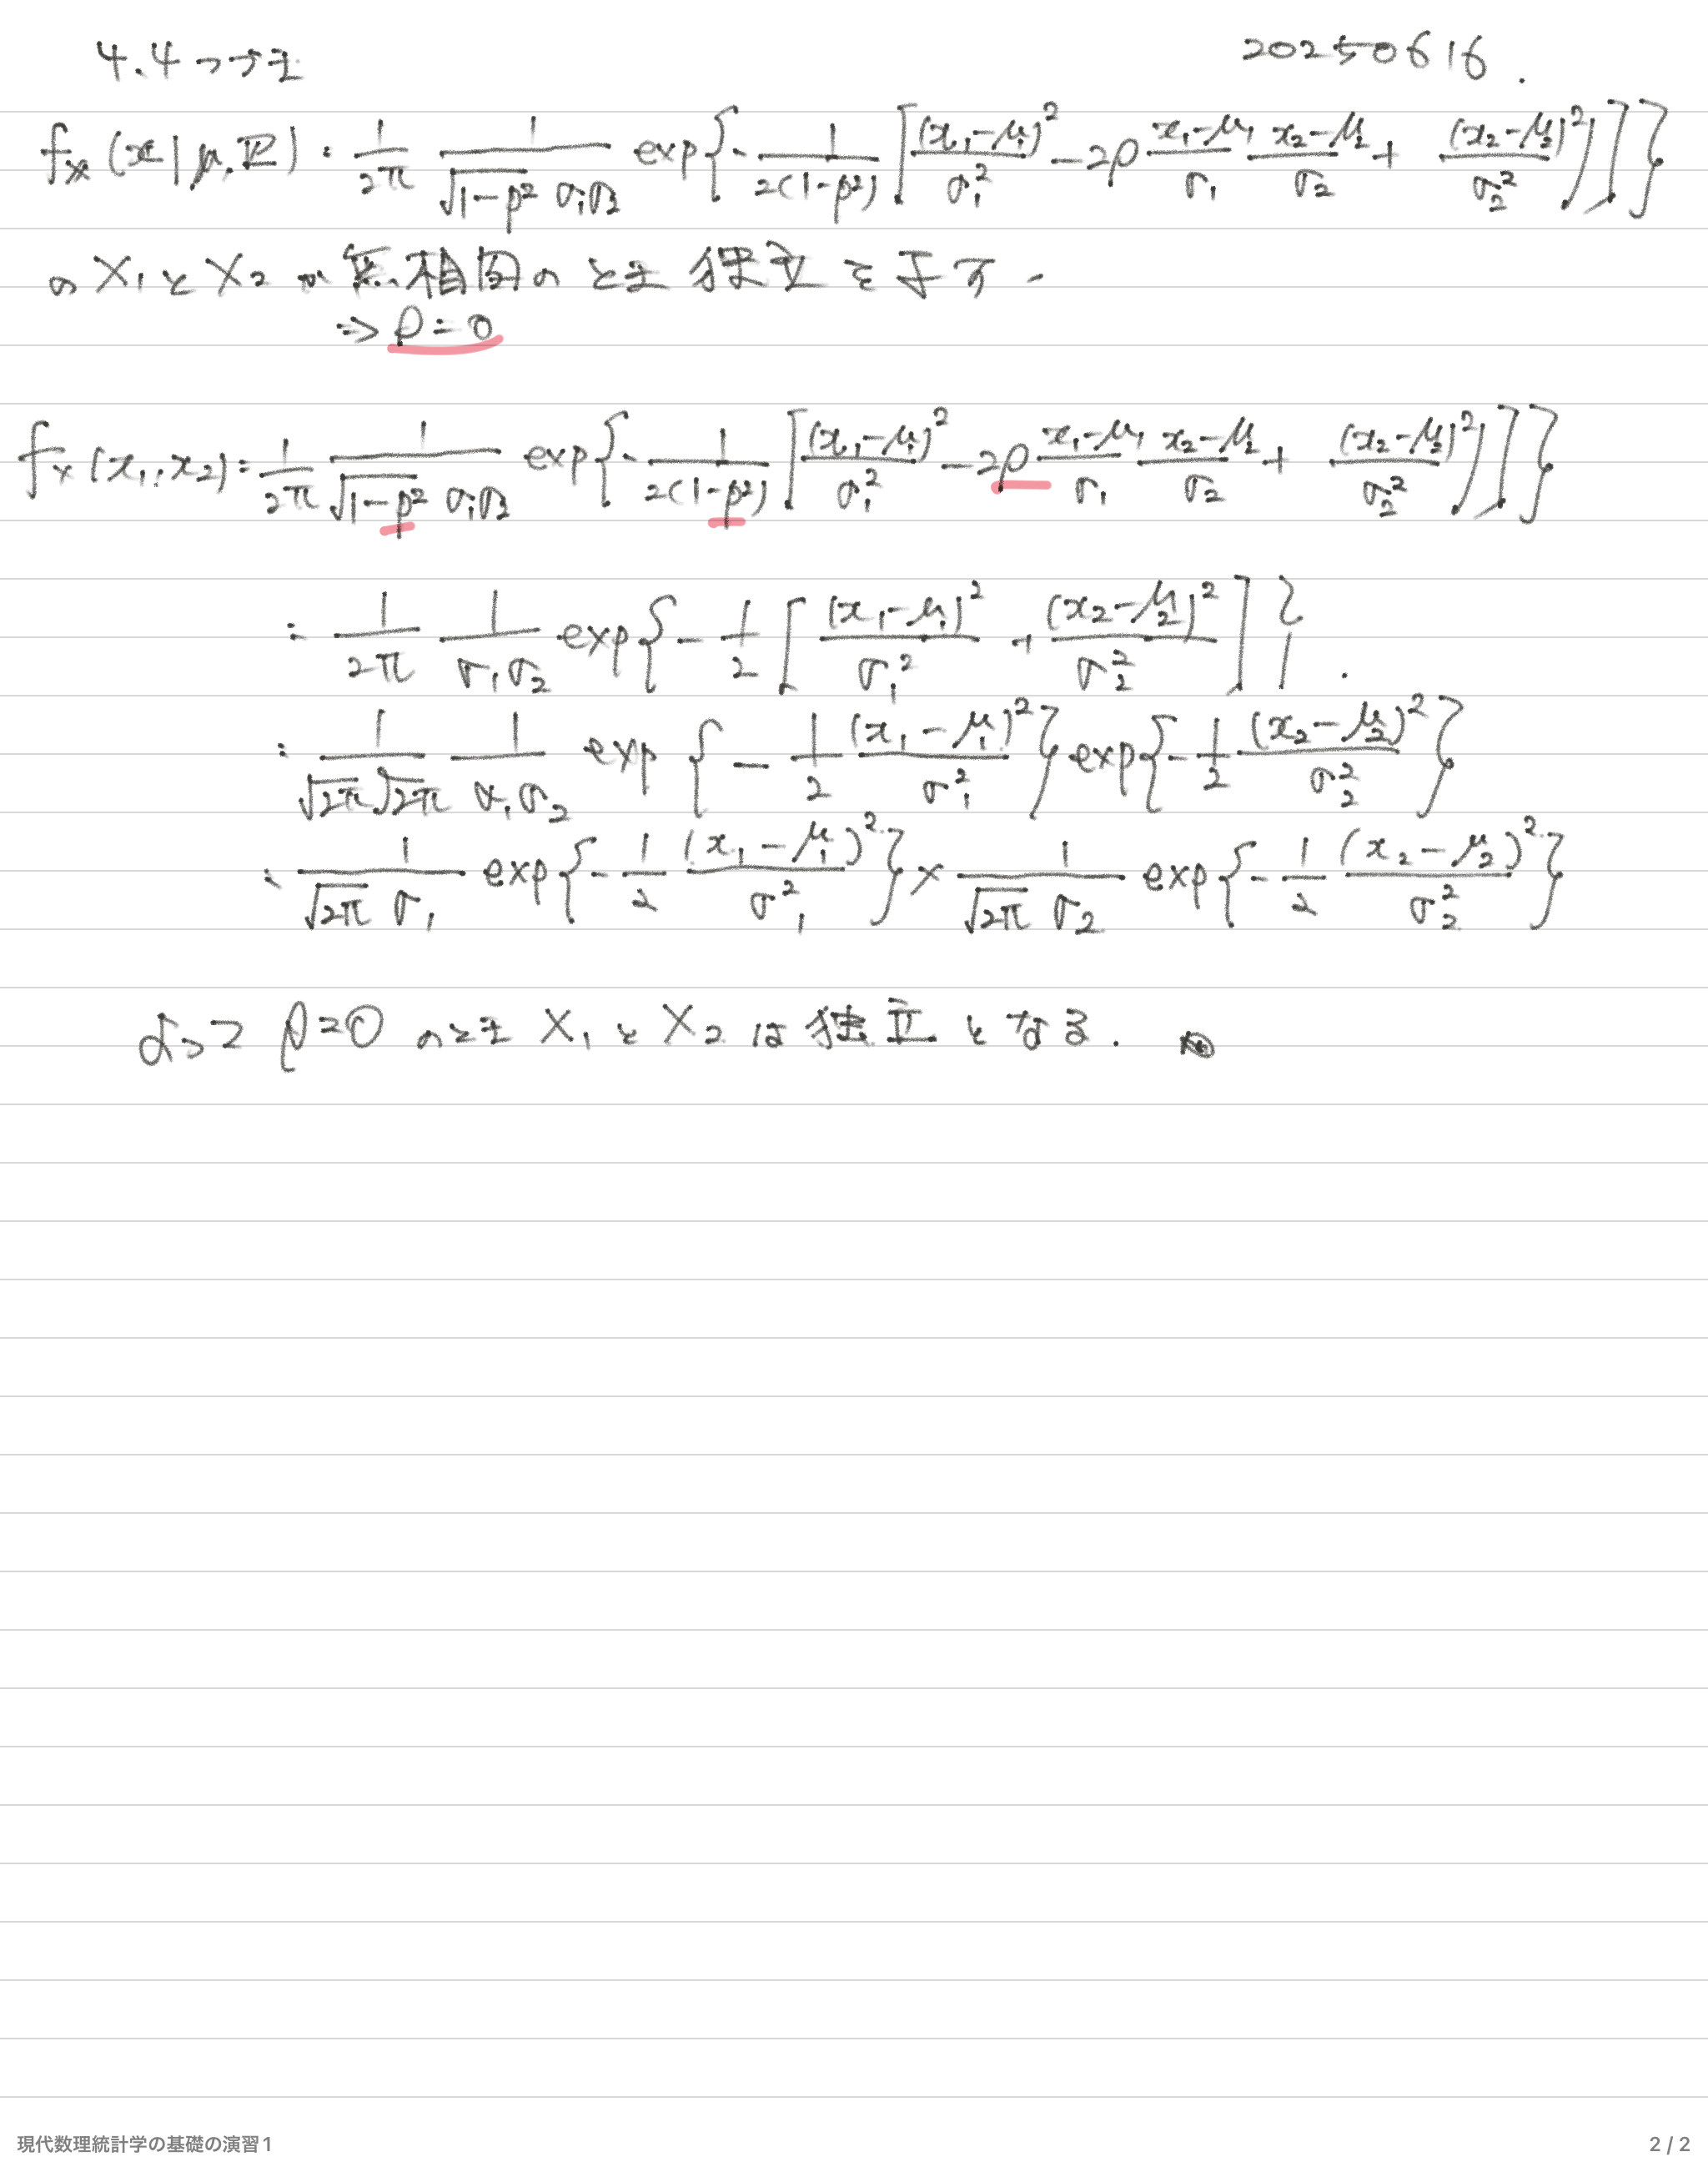 4.4つづき 20250616.
fx(x|μ,Σ) = 1/2π 1/(√(1-ρ²) σ₁σ₂) exp{-1/(2(1-ρ²)) [(x₁-μ₁)²/σ₁² - 2ρ (x₁-μ₁)/σ₁ (x₂-μ₂)/σ₂ + (x₂-μ₂)²/σ₂²]}
の X₁と X₂ が 無相関のとき 独立を示す.
⇒ ρ=0
fx(x₁,x₂) = 1/2π 1/(√(1-ρ²) σ₁σ₂) exp{-1/(2(1-ρ²)) [(x₁-μ₁)²/σ₁² - 2ρ (x₁-μ₁)/σ₁ (x₂-μ₂)/σ₂ + (x₂-μ₂)²/σ₂²]}
= 1/2π 1/(σ₁σ₂) exp{-1/2 [(x₁-μ₁)²/σ₁² + (x₂-μ₂)²/σ₂²]}.
= 1/(√2π √2π) 1/(σ₁σ₂) exp{-1/2 (x₁-μ₁)²/σ₁²} exp{-1/2 (x₂-μ₂)²/σ₂²}
= 1/(√2π σ₁) exp{-1/2 (x₁-μ₁)²/σ₁²} × 1/(√2π σ₂) exp{-1/2 (x₂-μ₂)²/σ₂²}
よって ρ=0 のとき X₁と X₂ は 独立 となる.
現代数理統計学の基礎の演習1 2 / 2